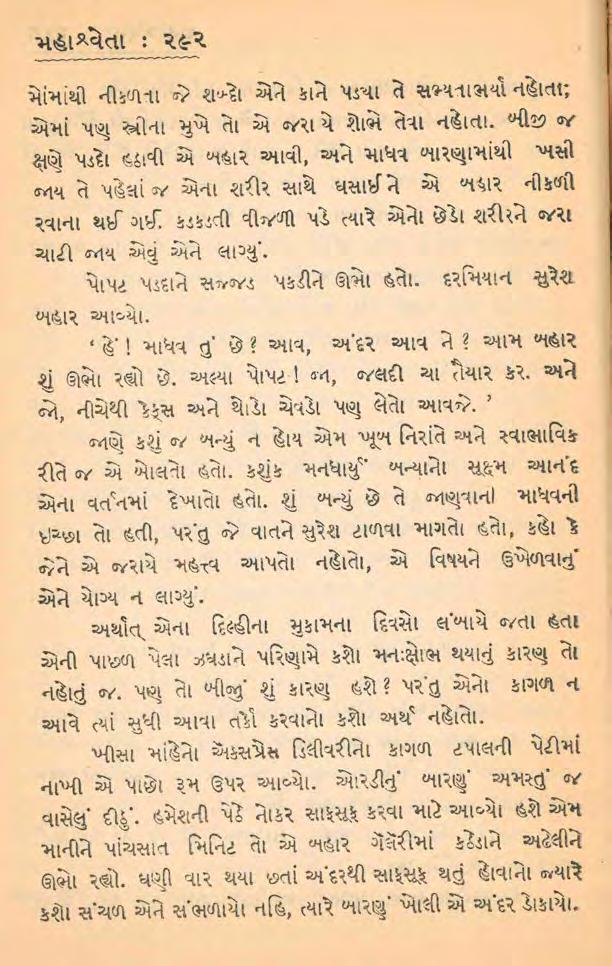 મહાશ્વેતા : ૨૯૨
મોંમાંથી નીકળતા જે શબ્દો એને કાને પડ્યા તે સભ્યતાભર્યા નહોતા;
એમાં પણ સ્ત્રીના મુખે તો એ જરા યે શોભે તેવા નહોતા. બીજી જ
ક્ષણે પડદો હઠાવી એ બહાર આવી, અને માધવ બારણામાંથી ખસી
જાય તે પહેલાં જ એના શરીર સાથે ઘસાઈને એ બહાર નીકળી
રવાના થઈ ગઈ. કડકડતી વીજળી પડે ત્યારે એનો છેડો શરીરને જરા
ચાટી જાય એવું એને લાગ્યું.
પોપટ પડદાને સજ્જડ પકડીને ઊભો હતો. દરમિયાન સુરેશ
બહાર આવ્યો.
‘ હેં ! માધવ તું છે ? આવ, અંદર આવ ને ? આમ બહાર
શું ઊભો રહ્યો છે. અલ્યા પોપટ ! જા, જલદી ચા તૈયાર કર. અને
જો, નીચેથી કેક્સ અને થોડો ચેવડો પણ લેતો આવજે. ’
જાણે કશું જ બન્યું ન હોય એમ ખૂબ નિરાંતે અને સ્વાભાવિક
રીતે જ એ બોલતો હતો. કશુંક મનધાર્યું બન્યાનો સૂક્ષ્મ આનંદ
એના વર્તનમાં દેખાતો હતો. શું બન્યું છે તે જાણવાની માધવની
ઇચ્છા તો હતી, પરંતુ જે વાતને સુરેશ ટાળવા માગતો હતો, કહો કે
જેને એ જરાયે મહત્ત્વ આપતો નહોતો, એ વિષયને ઉખેળવાનું
એને યોગ્ય ન લાગ્યું.
અર્થાત્ એના દિલ્હીના મુકામના દિવસો લંબાયે જતા હતા
એની પાછળ પેલા ઝઘડાને પરિણામે કશો મનઃક્ષોભ થયાનું કારણ તો
નહોતું જ. પણ તો બીજું શું કારણ હશે ? પરંતુ એનો કાગળ ન
આવે ત્યાં સુધી આવા તર્કો કરવાનો કશો અર્થ નહોતો.
ખીસા માંહેનો ઍક્સપ્રેસ ડિલીવરીનો કાગળ ટપાલની પેટીમાં
નાખી એ પાછો રૂમ ઉપર આવ્યો. ઓરડીનું બારણું અમસ્તું જ
વાસેલું દીઠું. હમેશની પેઠે નોકર સાફસૂફ કરવા માટે આવ્યો હશે એમ
માનીને પાંચસાત મિનિટ તો એ બહાર ગૅલૅરીમાં કઠેડાને અઢેલીને
ઊભો રહ્યો. ઘણી વાર થયા છતાં અંદરથી સાફસૂફ થતું હોવાનો જ્યારે
કશો સંચળ એને સંભળાયો નહિ, ત્યારે બારણું ખોલી એ અંદર ડોકાયો.